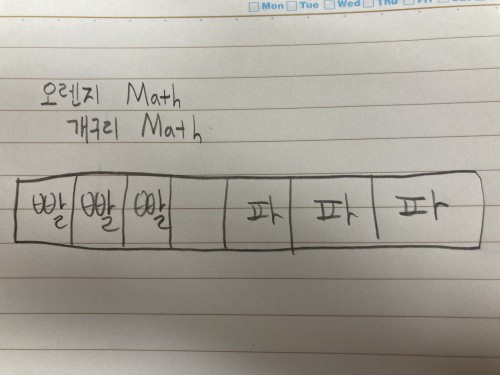 Mon Tue Wed Thu Fri
오렌지 Math
개구리 Math
빨 빨 빨 파 파 파